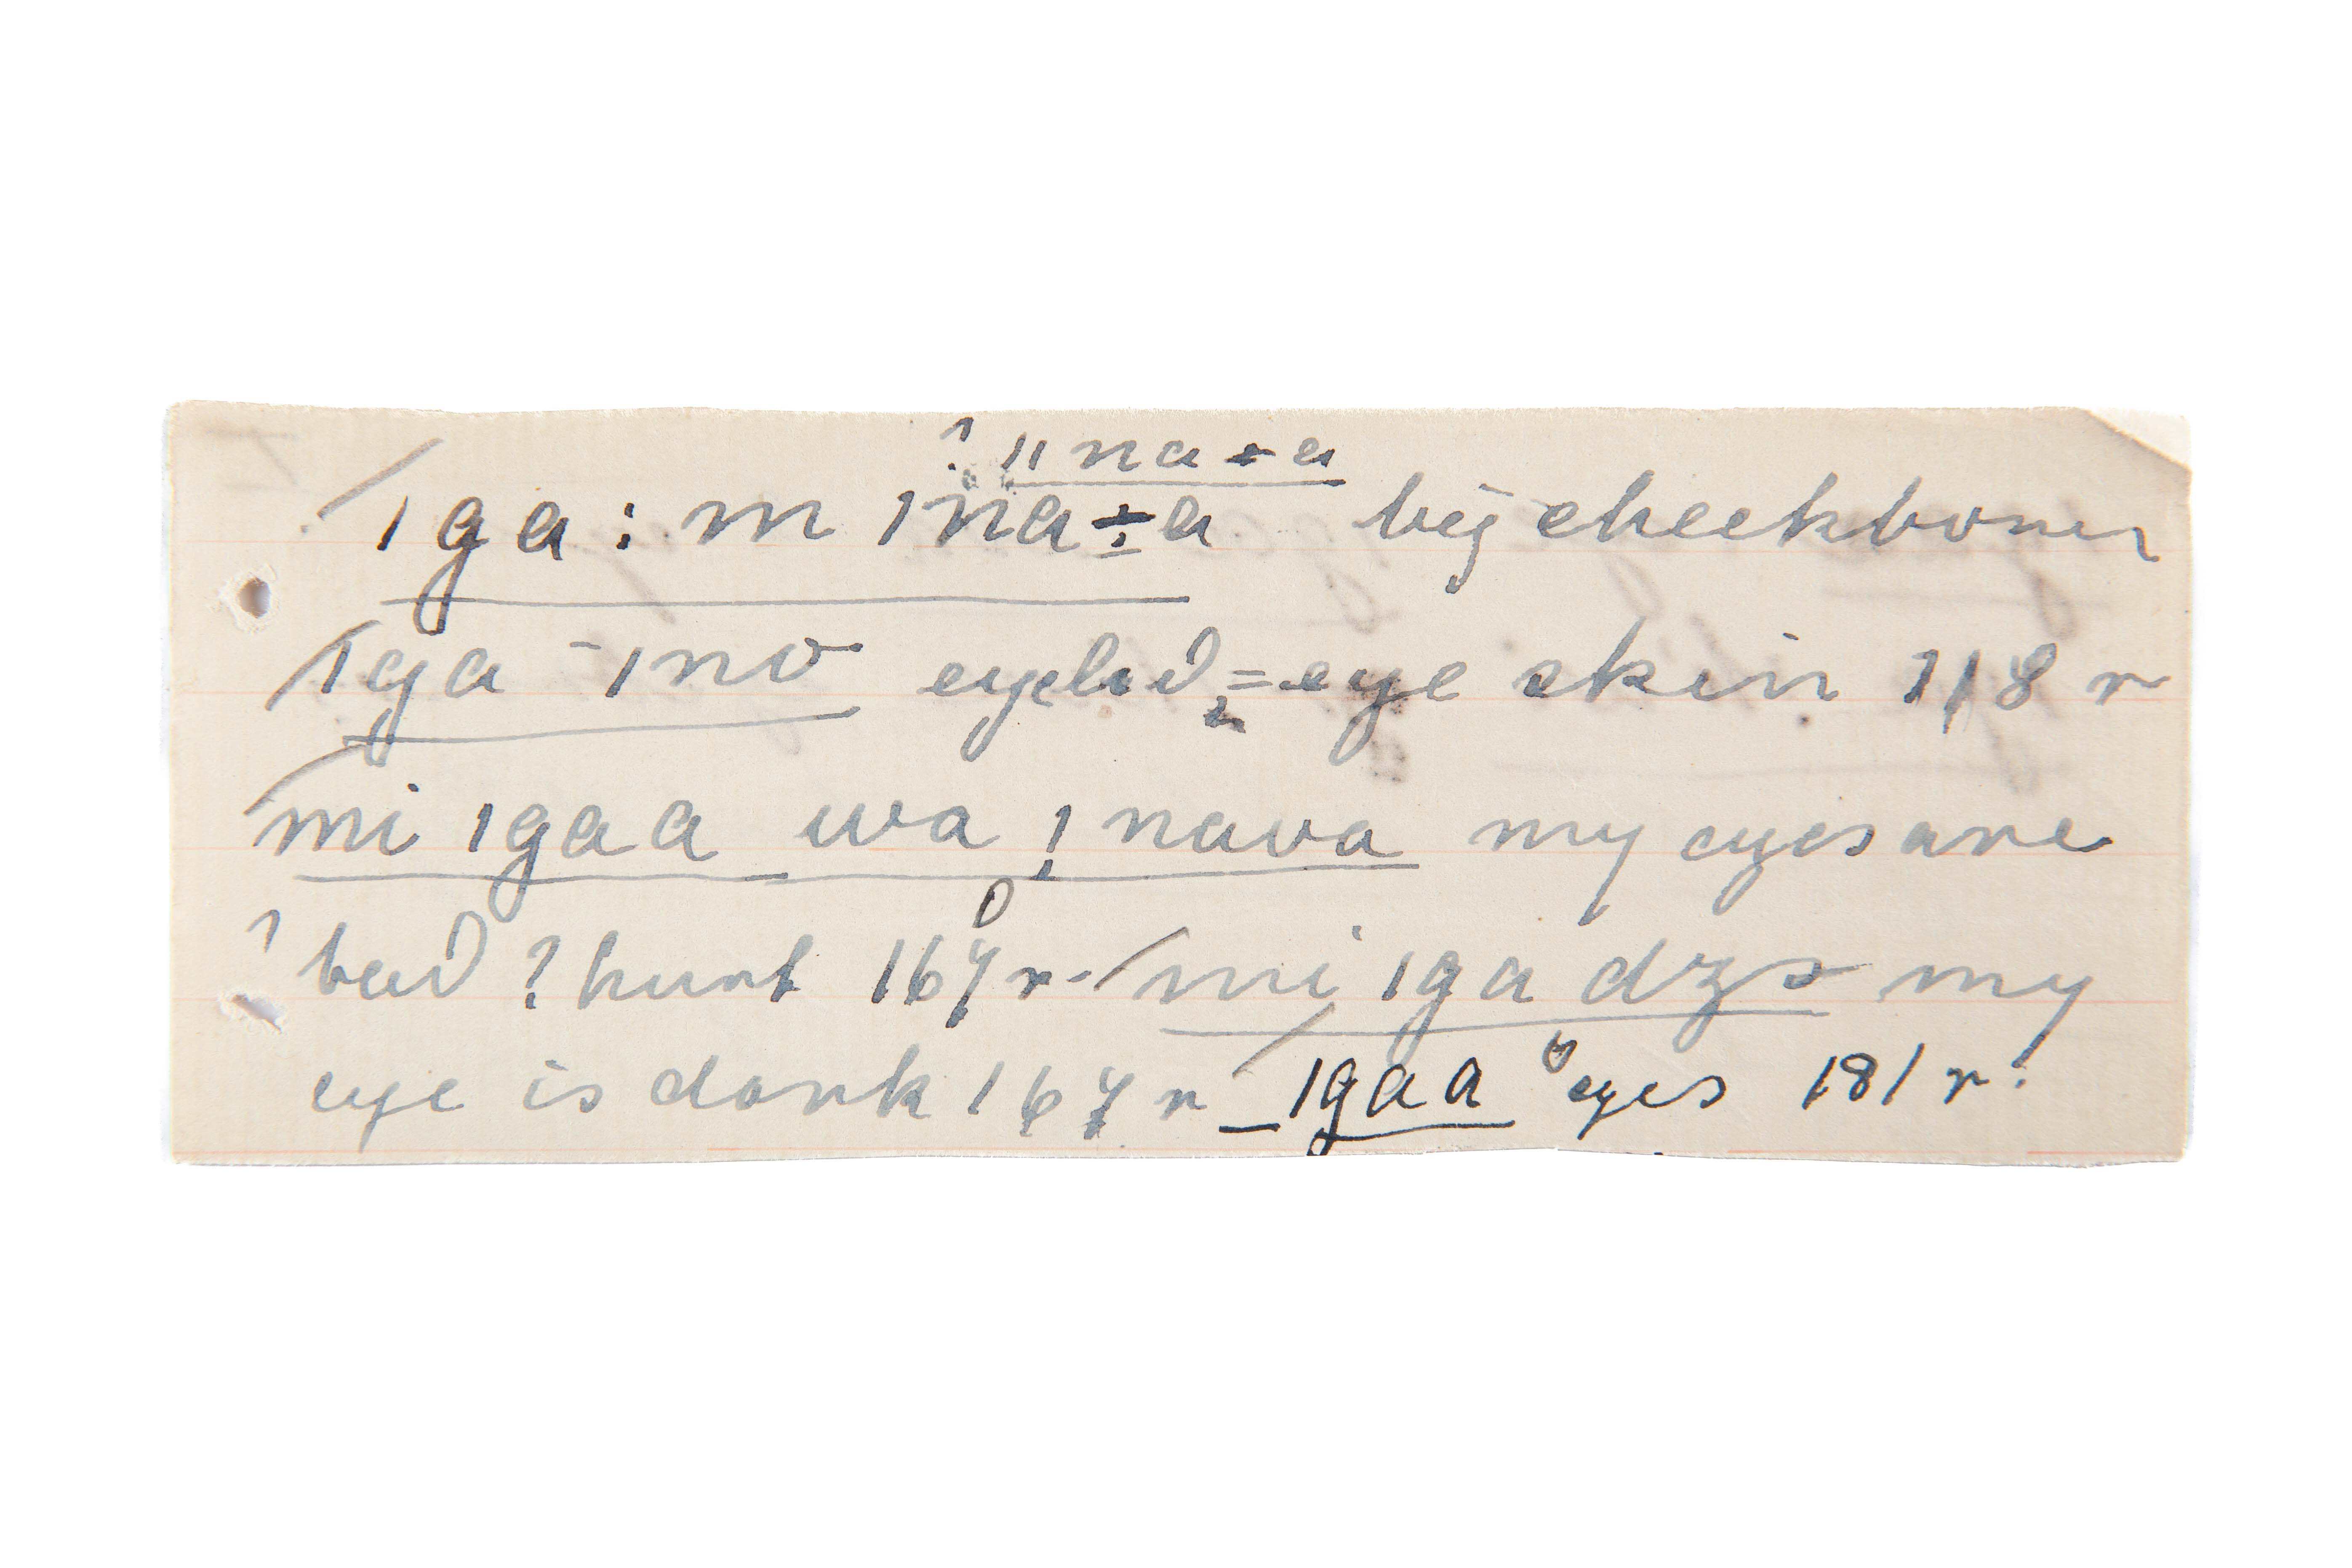 ? ıına-a
ıga: m ına÷a big cheekbones
ıga-ıno eyelid, = eye skin 118 r
mi ıgaa wa ! nava my eyes are
? bad ? hurt 167 r - mi ıga dzo my
eye is dark 167 r - ıgaa eyes 181 r.